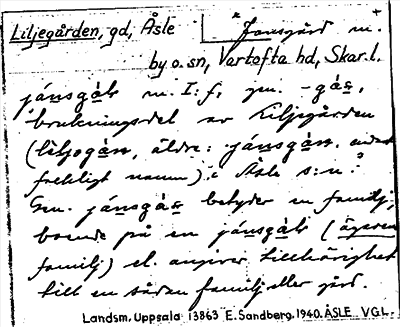 Liljegården, gd, Åsle "Jansgård m. +
by o. sn, Vartofta hd, Skar. l.
m. I. f. gm. -gás,
brukningsdel av Liljegården
(liljogán, äldre: jánsgán,
namn) i Åsle s:n."
Gm. betyder en familj,
boende på en (
familj) el. angiver tillhörighet
till en sådan familj eller gård.
Landsm, Uppsala 13863 E. Sandberg. 1940. ÅSLE VGL.